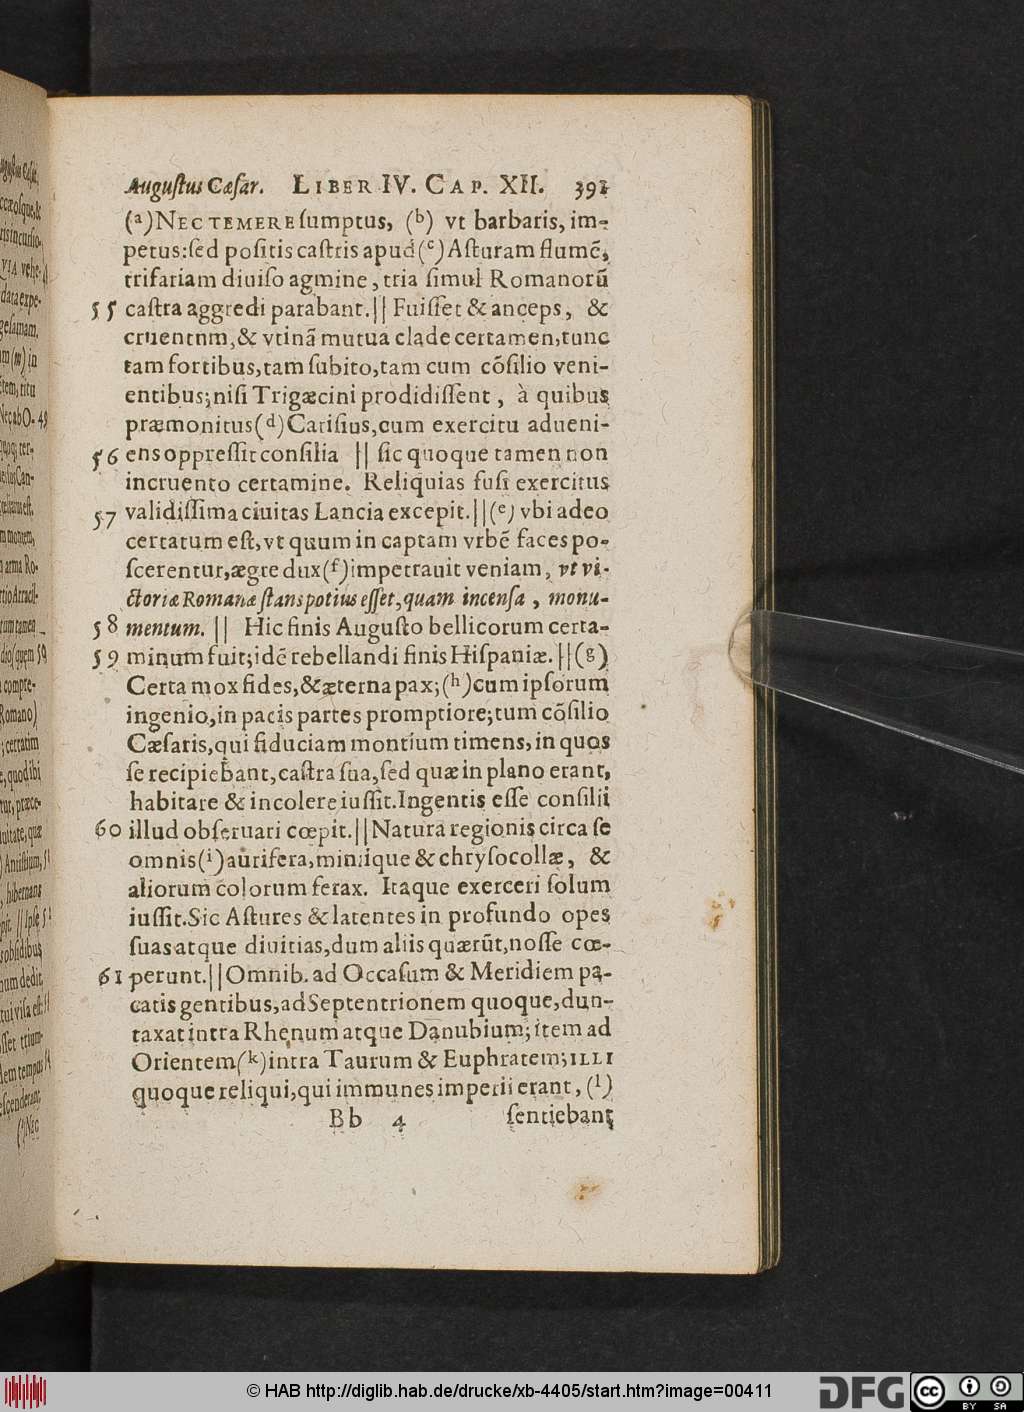 Auguſtus Cæſar. LIBER IV. CAP. XII. 391
(a)NEC TEMERE ſumptus, (b) vt barbaris, im-
petus: ſed poſitis caſtris apud (c) Aſturam flumē,
trifariam diuiſo agmine, tria ſimul Romanorū
55 caſtra aggredi parabant. || Fuiſſet & anceps, &
cruentnm, & vtinā mutua clade certamen, tunc
tam fortibus, tam ſubito, tam cum cōſilio veni-
entibus; niſi Trigæcini prodidiſſent, à quibus
præmonitus (d) Cariſius, cum exercitu adueni-
56 ens oppreſſit conſilia || ſic quoque tamen non
incruento certamine. Reliquias fuſi exercitus
57 validiſſima ciuitas Lancia excepit. || (e) vbi adeo
certatum eſt, vt quum in captam vrbē faces po-
ſcerentur, ægre dux (f) impetrauit veniam, vt vi-
ctoriæ Romanæ ſtans potius eſſet, quam incenſa, monu-
58 mentum. || Hic finis Auguſto bellicorum certa-
59 minum fuit; idē rebellandi finis Hiſpaniæ. || (g)
Certa mox fides, & æterna pax; (h) cum ipſorum
ingenio, in pacis partes promptiore; tum cōſilio
Cæſaris, qui fiduciam montium timens, in quos
ſe recipiebant, caſtra ſua, ſed quæ in plano erant,
habitare & incolere iuſſit. Ingentis eſſe conſilii
60 illud obſeruari cœpit. || Natura regionis circa ſe
omnis (i) aurifera, miniique & chryſocollæ, &
aliorum colorum ferax. Itaque exerceri ſolum
iuſſit. Sic Aſtures & latentes in profundo opes
ſuas atque diuitias, dum aliis quærūt, noſſe cœ-
61 perunt. || Omnib. ad Occaſum & Meridiem pa-
catis gentibus, ad Septentrionem quoque, dun-
taxat intra Rhenum atque Danubium; item ad
Orientem (k) intra Taurum & Euphratem; ILLI
quoque reliqui, qui immunes imperii erant, (l)
Bb 4 ſentiebant
© HAB http://diglib.hab.de/drucke/xb-4405/start.htm?image=00411
DFG
cc BY SA